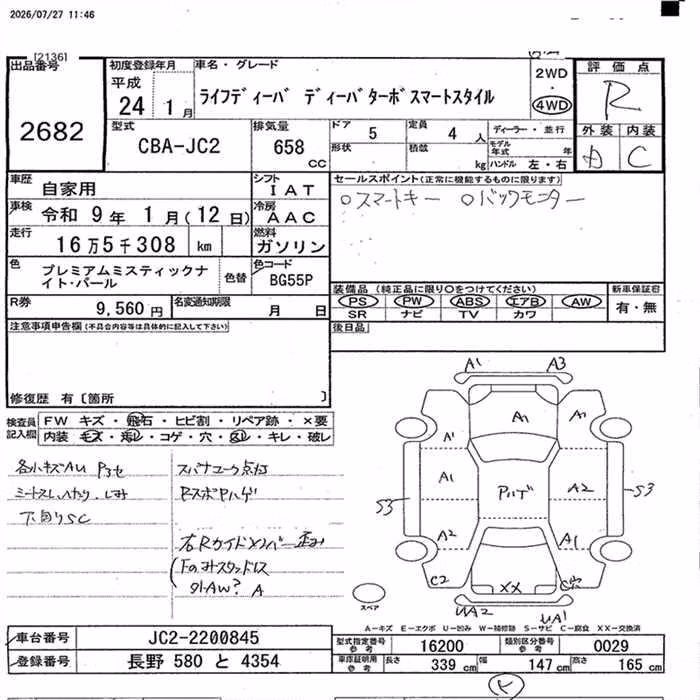 2026/07/27 11:46
[2136]
出品番号
2682
初度登録年月
平成
24 1月
車名・グレード
ライフディーバ ディーバターボスマートスタイル
2WD
・
4WD
評価点
R
外装 内装
D C
型式
CBA-JC2
排気量
658
CC
ドア 5
定員 4 人
形状
積載 kg
ディーラー・並行
モデル年式 年
ハンドル 左・右
車歴 自家用
シフト IAT
車検 令和 9年 1月(12日)
冷房 AAC
走行 16万5千308 km
燃料 ガソリン
色 プレミアムミスティックナイト・パール
色替
色コード BG55P
R券 9,560円
名変通知期限 月 日
セールスポイント(正常に機能するものに限ります)
○スマートキー ○バックモニター
装備品(純正品に限り○をつけてください)
PS PW ABS エアB AW
SR ナビ TV カワ
新車保証書
有・無
後日品
注意事項申告欄(不具合内容等は具体的に記入して下さい)
修復歴 有〔箇所 〕
検査員記入欄
FW キズ・飛石・ヒビ割・リペア跡・×要
内装 キズ・汚レ・コゲ・穴・スレ・キレ・破レ
各小キズAU
下回りSC
A1 A3
A1 A1
A1
A1 A2
S3 S3
A2 A1
C2
XX
UA2 UA1
スペア
A-キズ E-エクボ U-凹み W-補修跡 S-サビ C-腐食 XX-交換済
車台番号 JC2-2200845
登録番号 長野 580 と 4354
型式指定番号 参考 16200
類別区分番号 参考 0029
車庫証明用 参考 長さ 339 cm 幅 147 cm 高さ 165 cm